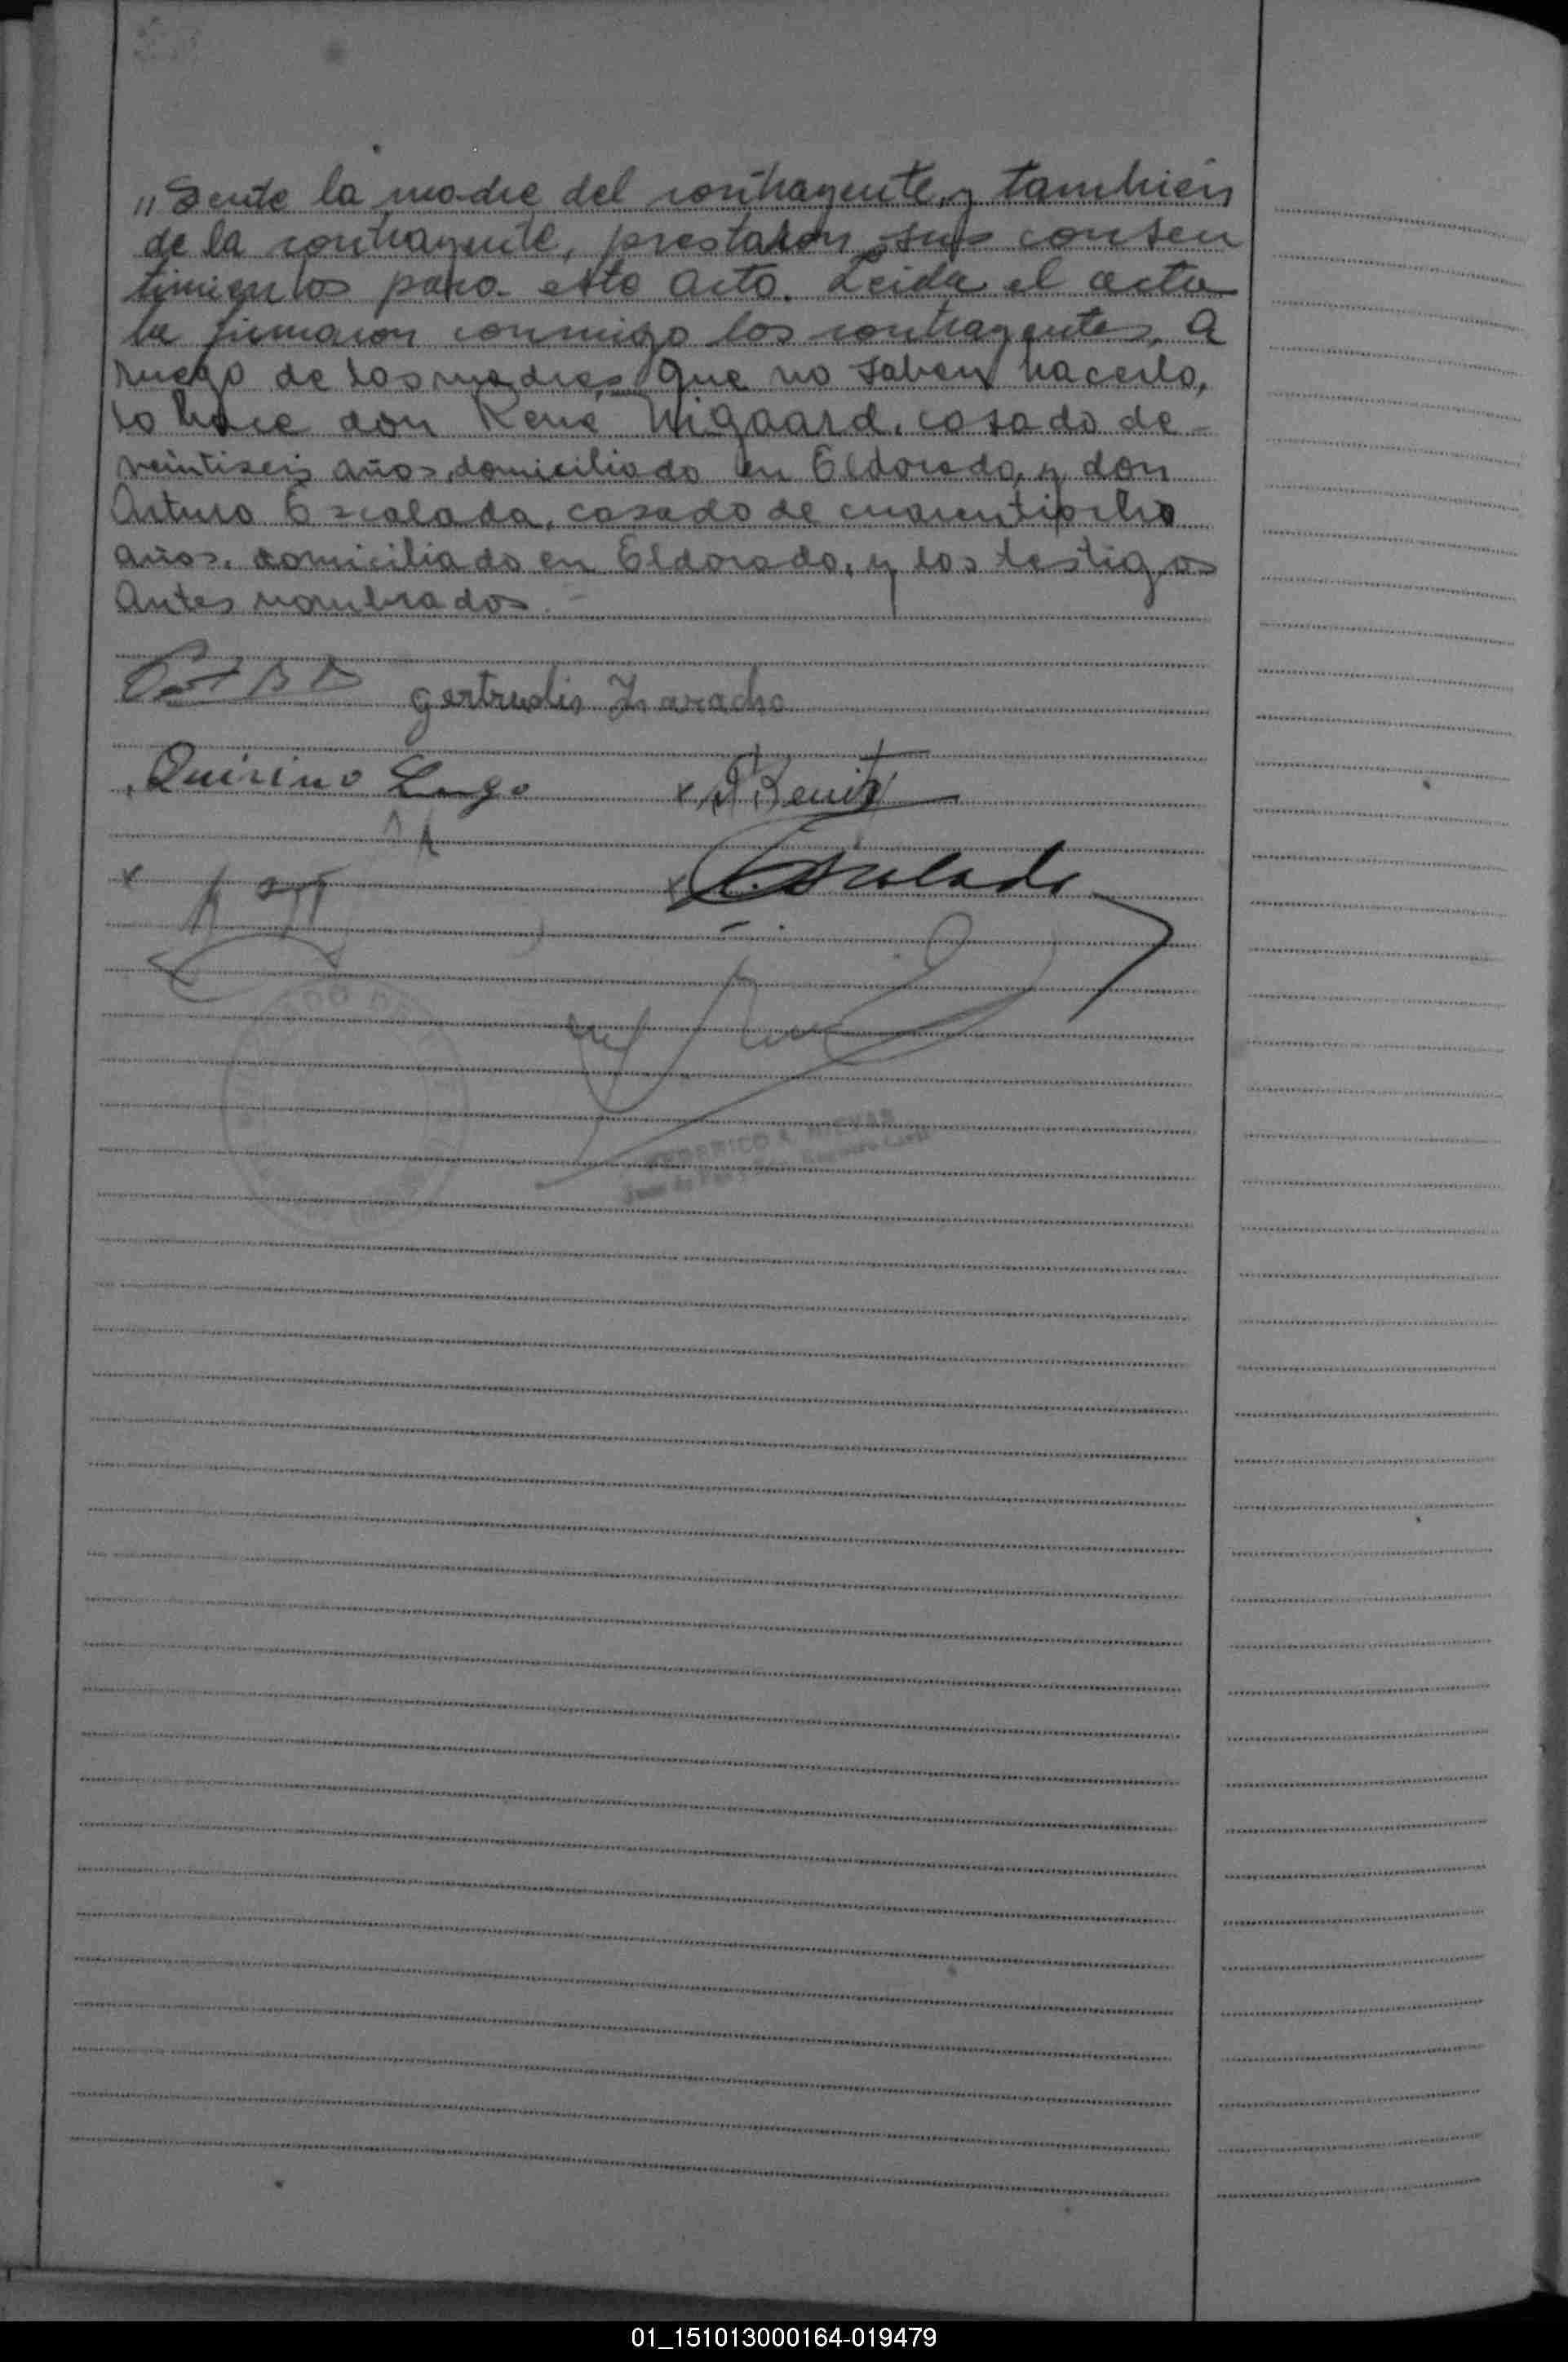 "Sente la madre del contrayente, y tambien
de la contrayente, prestaron sus consen
timientos para este acto. Leida el acta
la firmaron conmigo los contrayentes, a
ruego de las madres que no saben hacerlo,
lo hace don René Nigaard, casado de
veintiseis años, domiciliado en Eldorado, y don
Arturo Escalada, casado de cuarentiocho
años, domiciliado en Eldorado, y los testigos
Antes nombrados.-
Gertrudis Zaracho
Quirino Lugo
x Benit
x
x Escalada
Juez de Paz
01_151013000164-019479